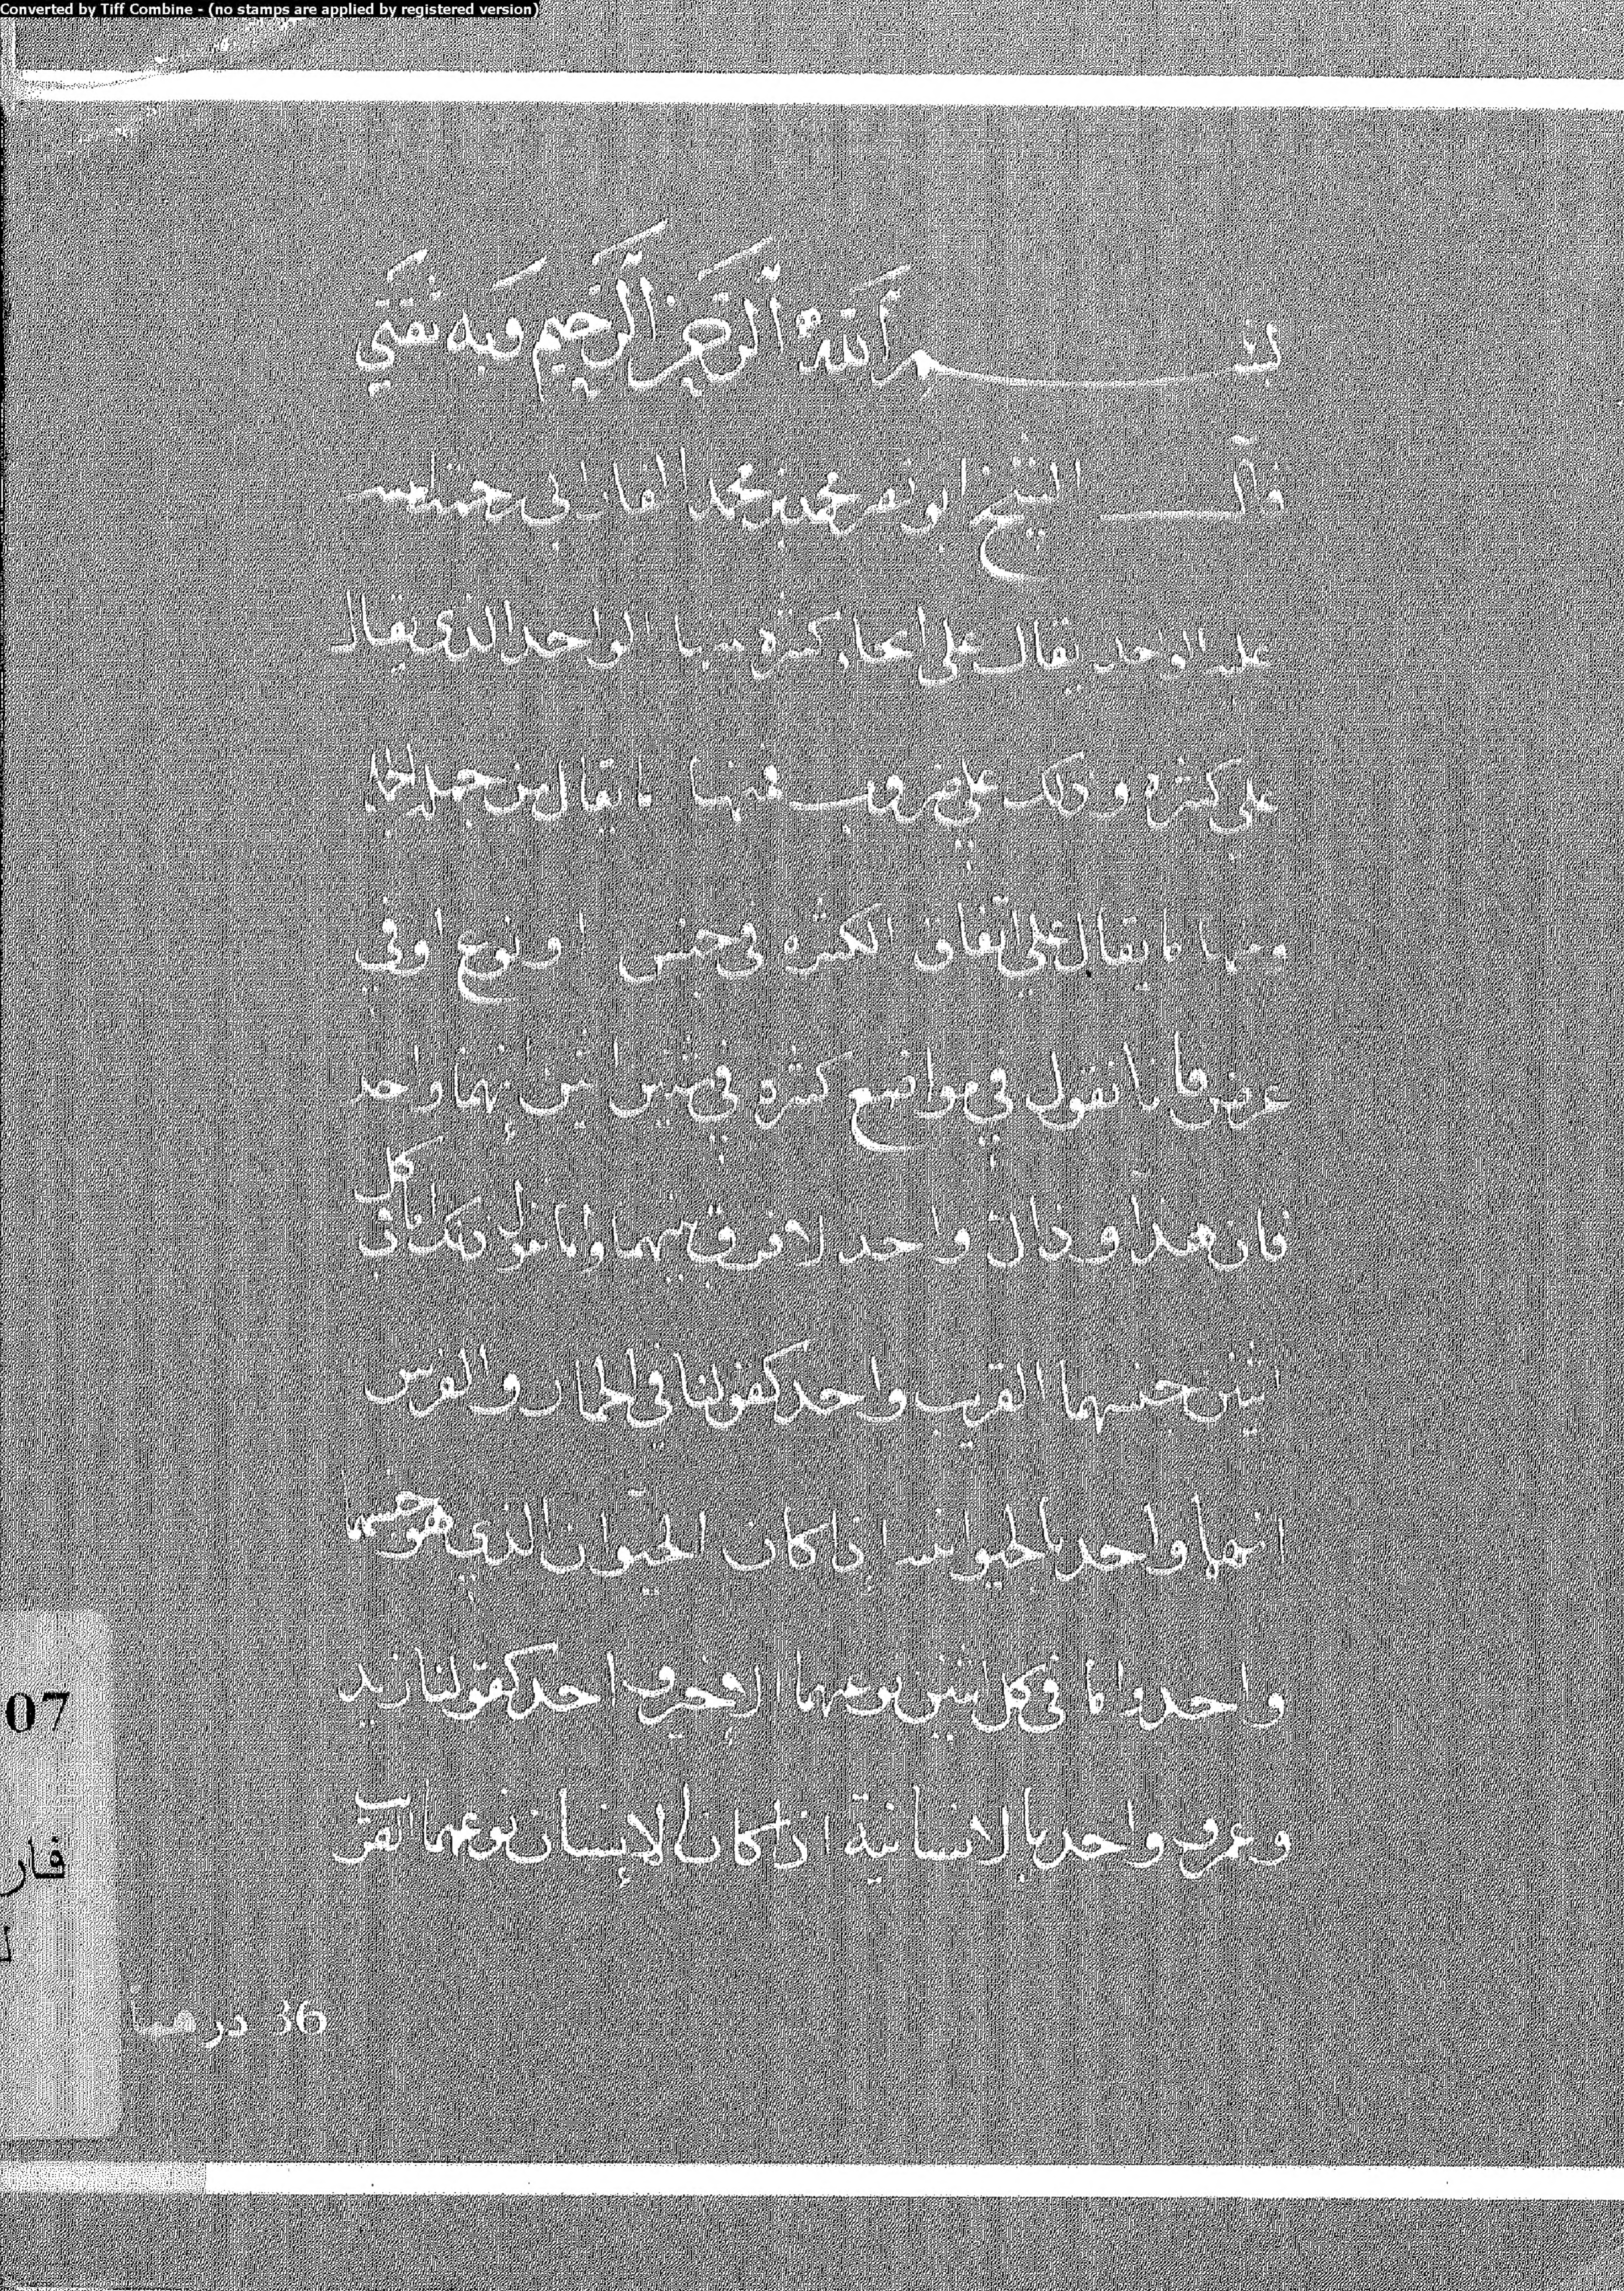 Converted by Tiff Combine - (no stamps are applied by registered version)
بسم الله الرحمن الرحيم وبه ثقتي
قال الشيخ ابو نصر محمد بن محمد الفارابي رحمة الله
عليه الواحد يقال على انحاء كثيره منها الواحد الذي يقال
على كثره وذلك على ضروب فمنها ما يقال من جهة
ومنها ما يقال على اتفاق الكثره في جنس او نوع او في
عرض فأنا نقول في مواضع كثره في شيئين اثنين إنهما واحد
فان هذا وذاك واحد لا فرق بينهما واما في كل
اثنين جنسهما القريب واحد كقولنا في الحمار والفرس
انهما واحد بالحيوانيه إذا كان الحيوان الذي هو جنسهما
واحد واما في كل اثنين نوعهما الاخير واحد كقولنا زيد
وعمرو واحد بالانسانية اذا كان الإنسان نوعهما القريب
07
فار
36 درهما